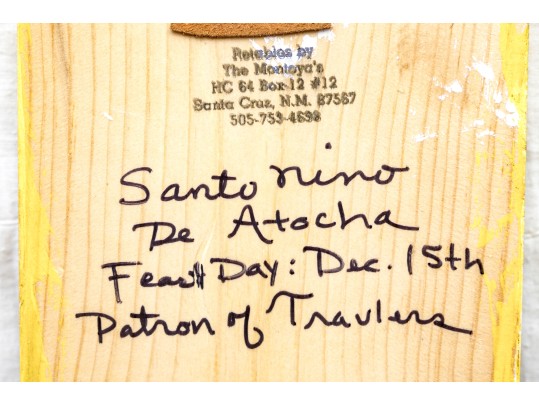 Retablos by
The Montoya's
HC 64 Box 12 #12
Santa Cruz, N.M. 87567
505-753-4698
Santo nino
De Atocha
Feast Day: Dec. 15th
Patron of Travlers